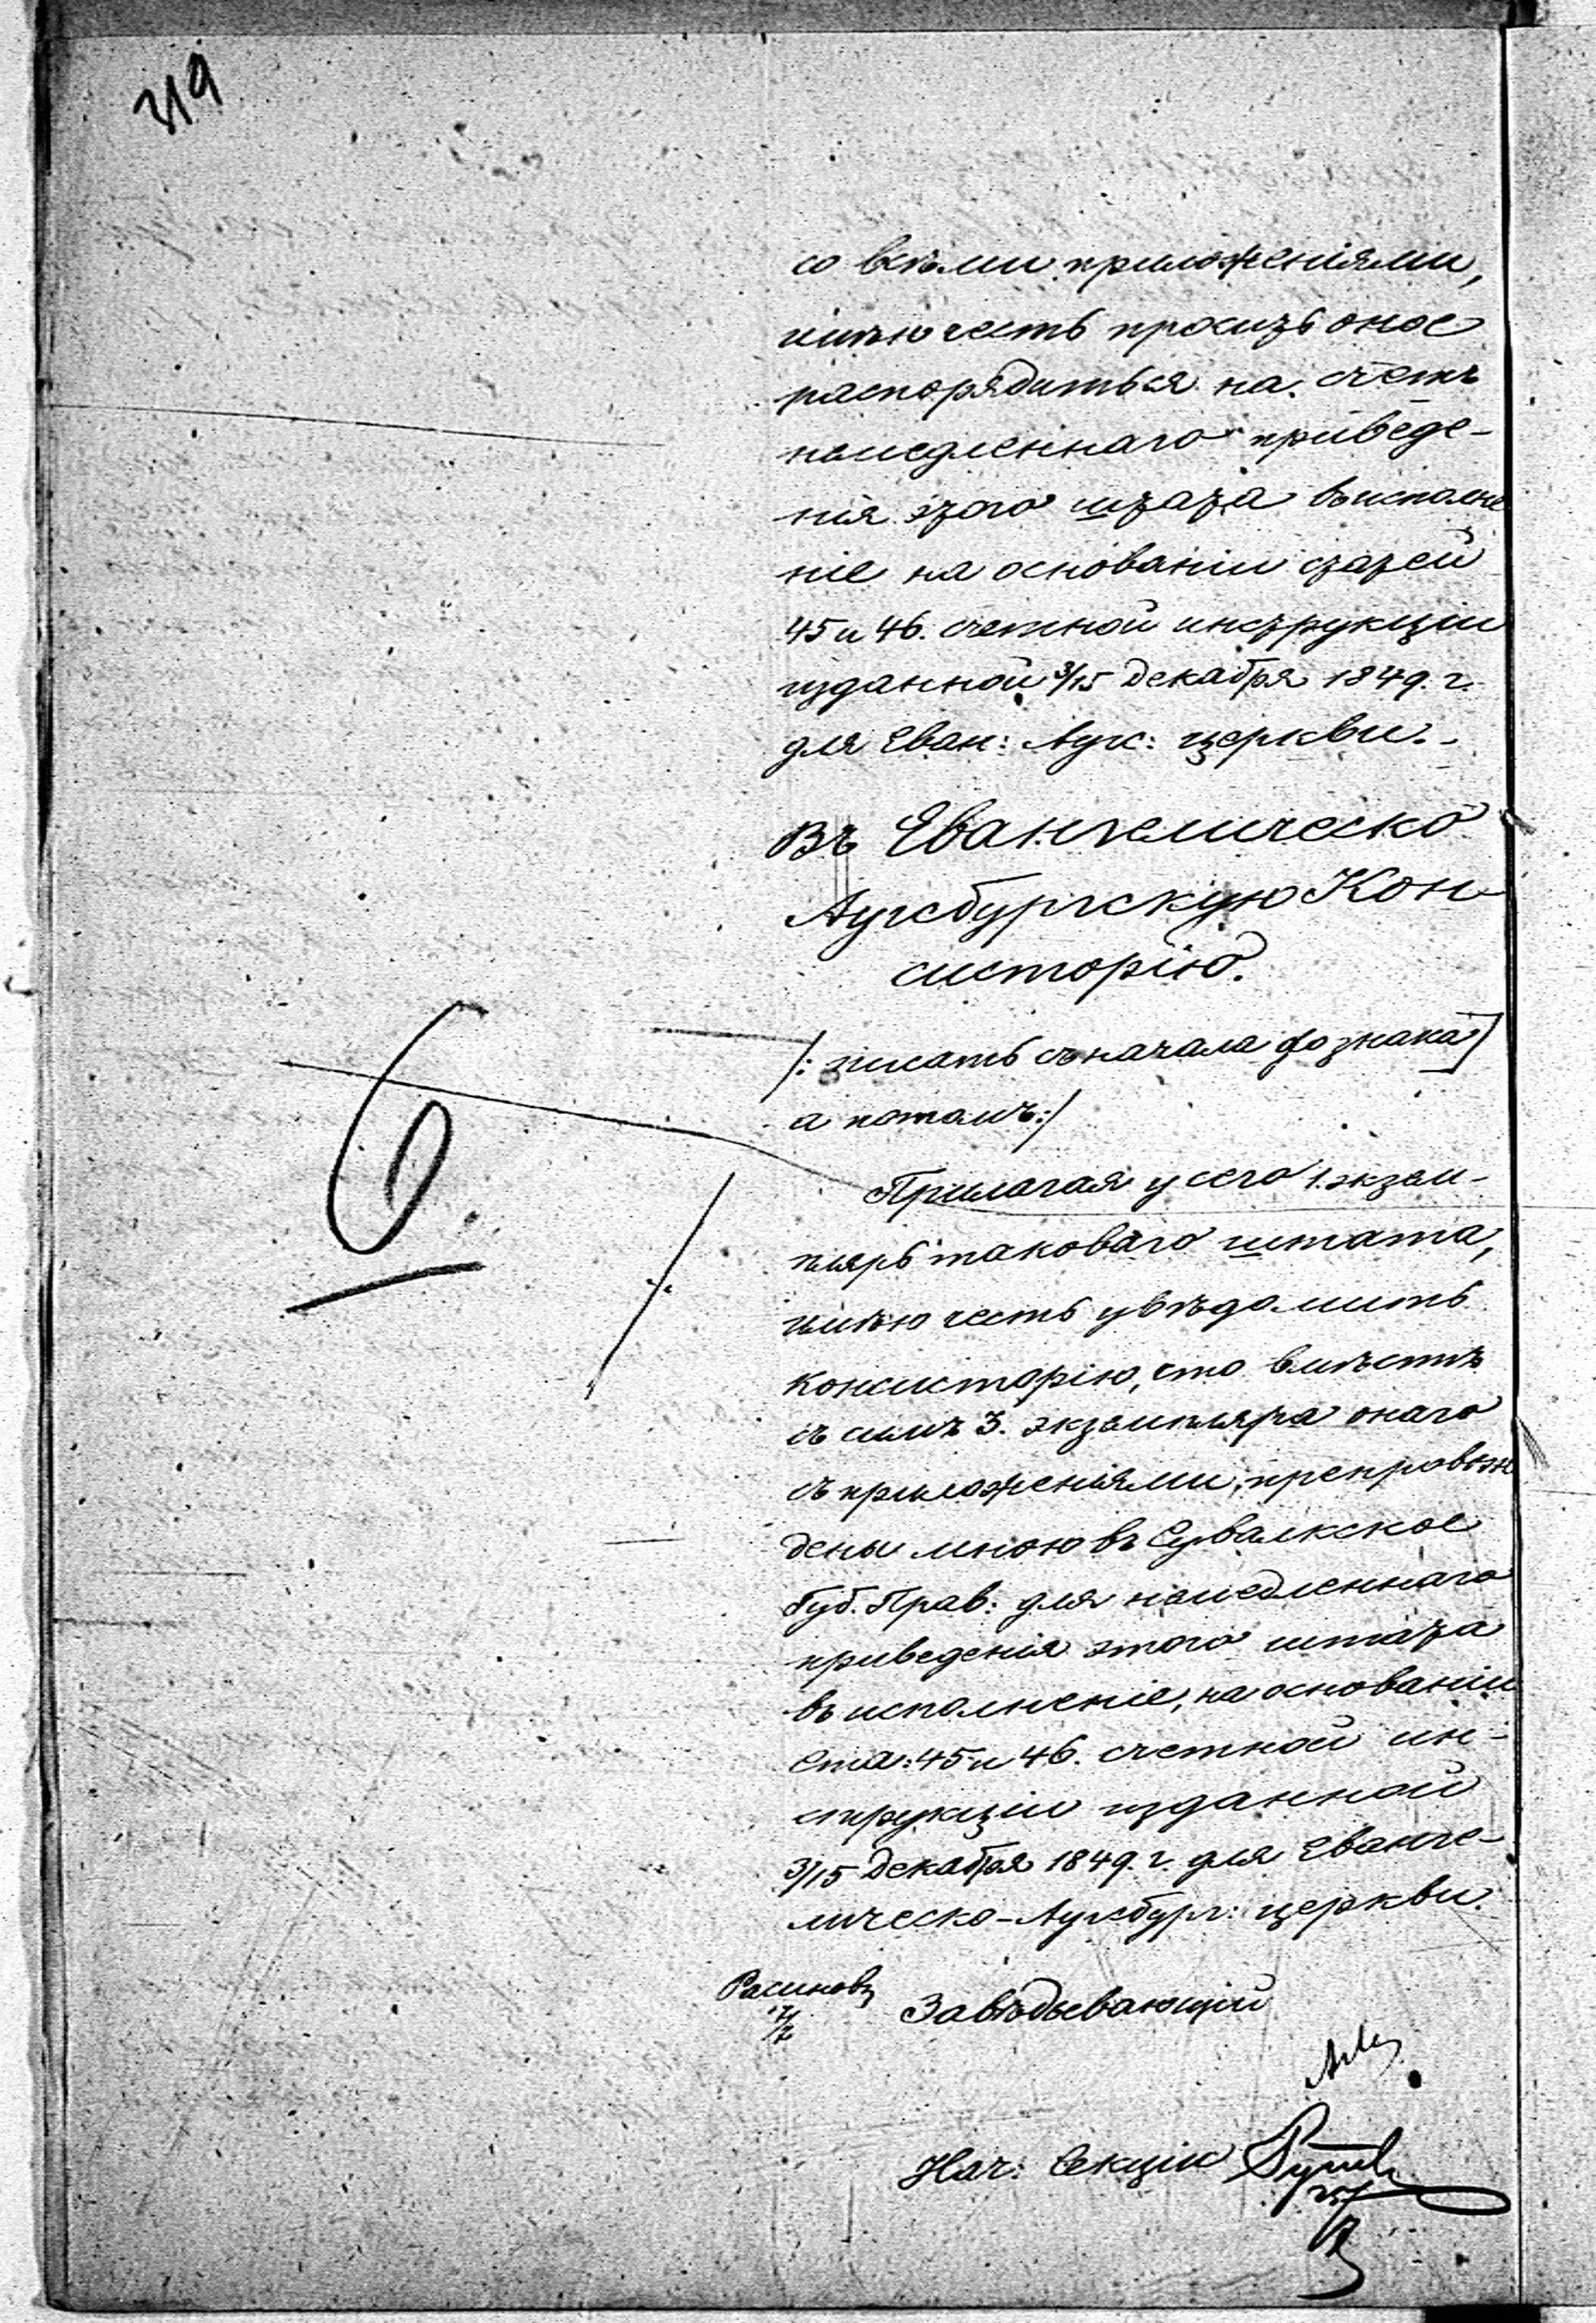 319
со всѣми приложеніями,
имѣю честь просить оное
распорядиться на счетъ
немедленнаго приведе-
нія этого штата въ исполне
ніе на основаніи статей
45 и 46. счетной инструкціи
изданной 3/15 Декабря 1849. г.
для Еван: Аугс: церкви.-
Въ Евангелическо
Аугсбургскую Кон-
систорію.
/: писать съ начала до знака]
а потомъ:/
6
Прилагая у сего 1. экзем-
пляръ таковаго штата,
имѣю честь увѣдомить
Консисторію, что вмѣстѣ
съ симъ 3. экземпляра онаго
съ приложеніями, препровож
дены мною въ Сувалкское
Губ. Прав: для немедленнаго
приведенія этого штата
въ исполненіе, на основаніи
Ста: 45 и 46. счетной ин-
струкціи изданной
3/15 Декабря 1849. г. для Еванге-
лическо-Аугсбург: церкви.
Завѣдывающій
Нач: Секціи